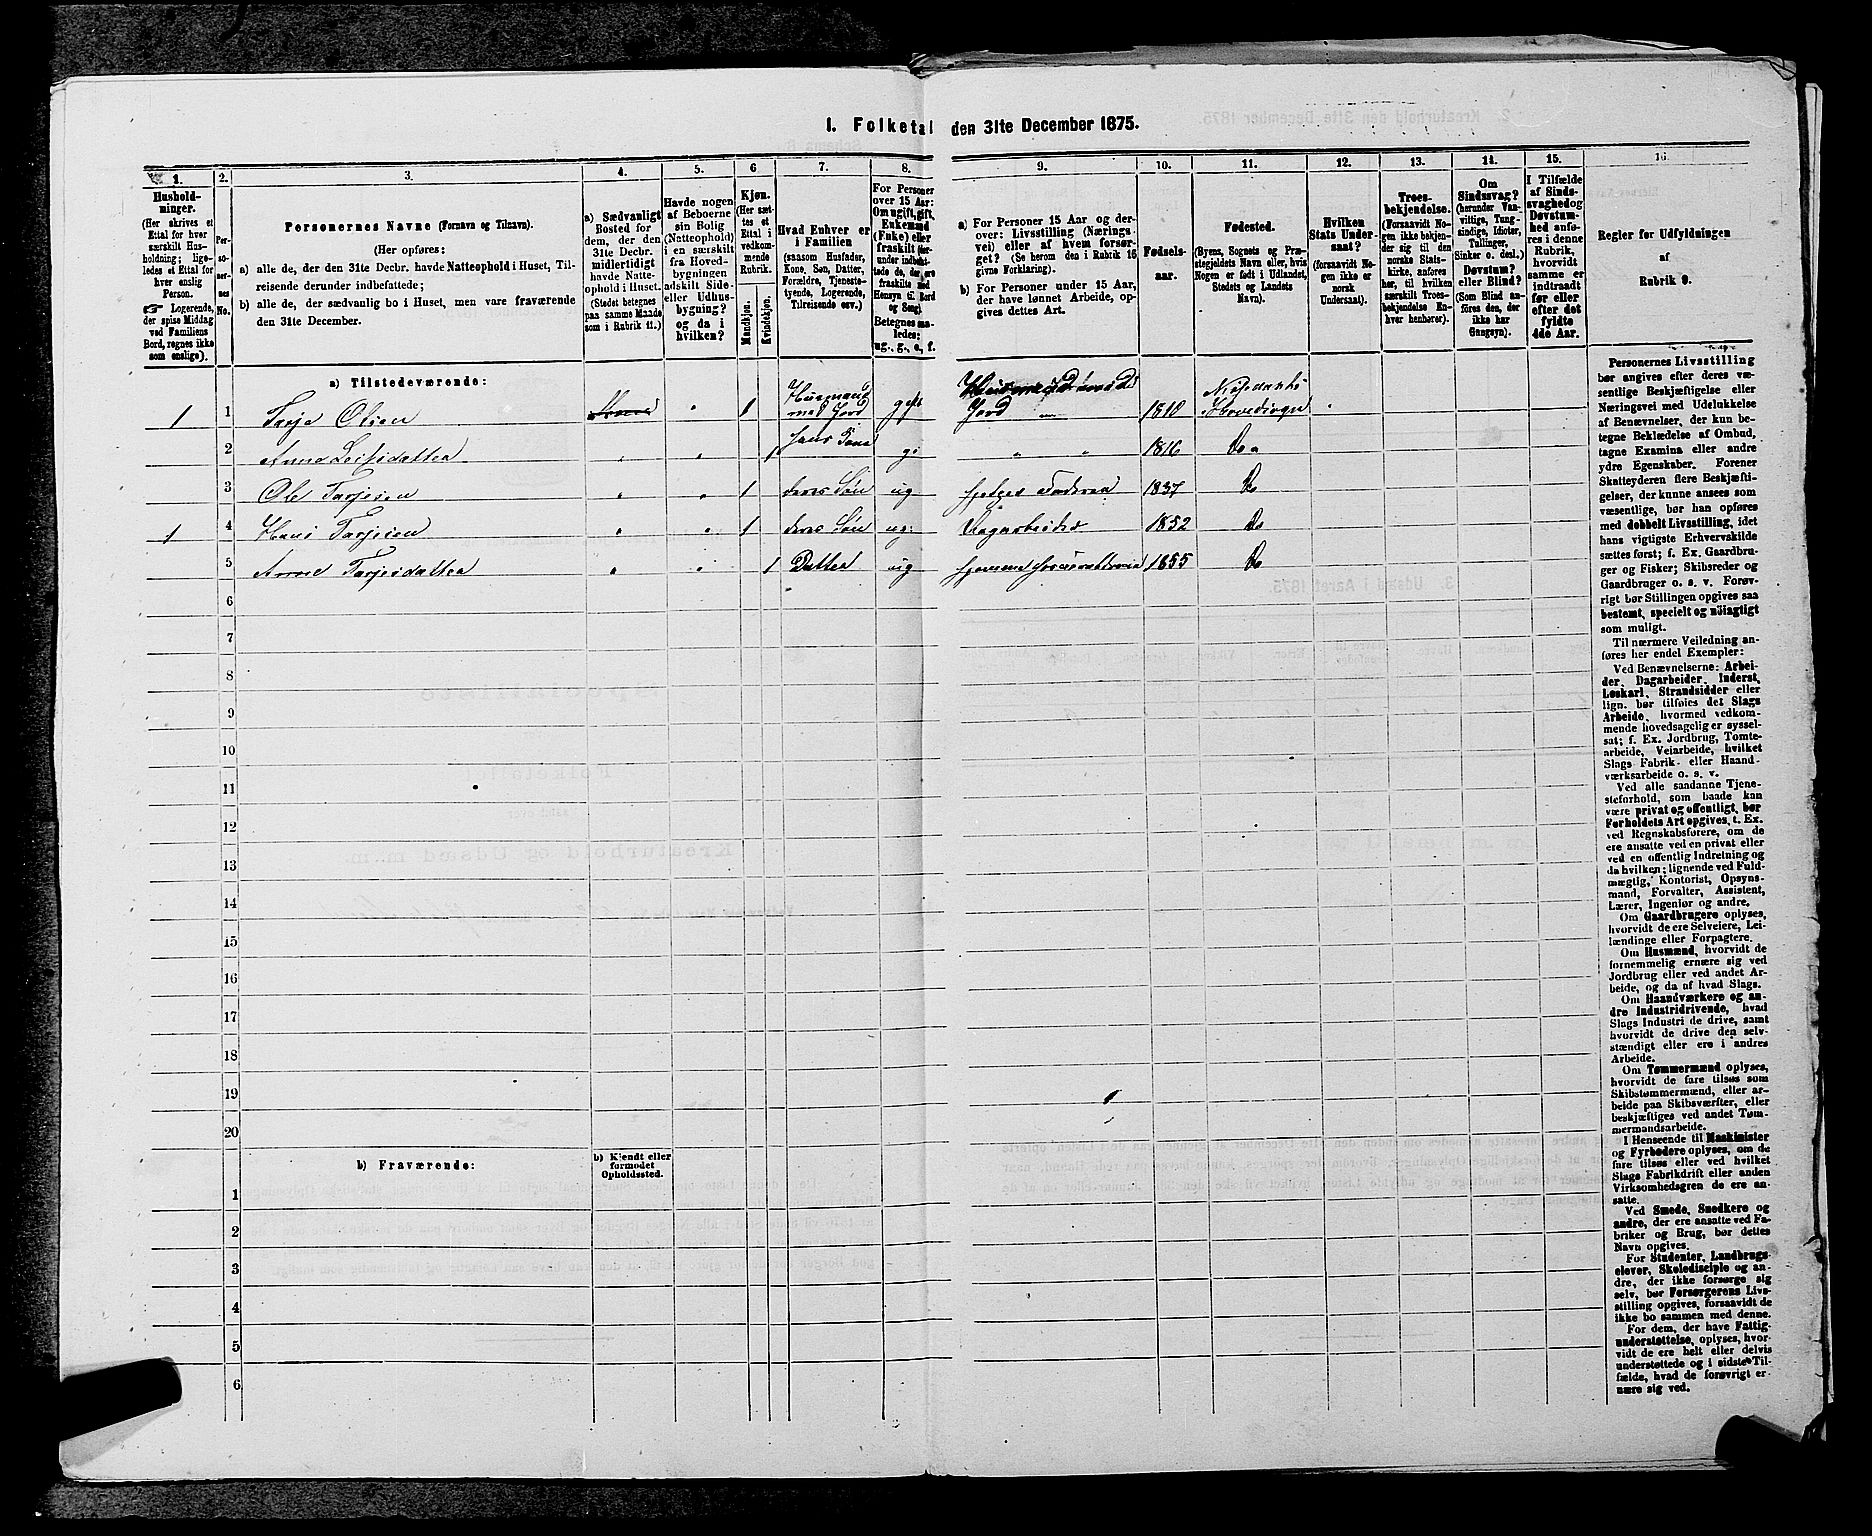 I. Folketal den 31te December 1875.
1.
Hushold-
ninger.
(Her skrives et
Ettal for hver
særskilt Hus-
holdning; lige-
ledes et Ettal for
hver enslig
Person.
Logerende,
der spise Middag
ved Familiens
Bord, regnes ikke
som enslige).
2.
Per-
so-
ner-
nes
No.
3.
Personernes Navne (Fornavn og Tilnavn).
(Her opføres:
a) alle de, der den 31te Decbr. havde Natteophold i Huset, Til-
reisende derunder indbefattede;
b) alle de, der sædvanlig bo i Huset, men vare fraværende
den 31te December.
4.
a) Sædvanligt
Bosted for
dem, der den
31te Decbr.
midlertidigt
havde Natte-
ophold i Huset.
(Stedet betegnes
paa samme Maade
som i Rubrik 11.)
5.
Havde nogen
af Beboerne
sin Bolig
(Natteophold)
i en særskilt
fra Hoved-
bygningen
adskilt Side-
eller Udhus-
bygning?
og da i
hvilken?
6
Kjøn.
(Her sæt-
tes et
Ettal i
vedkom-
mende
Rubrik.
Mandkjøn.
Kvindekjøn.
7.
Hvad Enhver er
i Familien
(saasom Husfader,
Kone, Søn, Datter,
Forældre, Tjeneste-
tyende, Logerende,
Tilreisende osv.)
8.
For Personer
over 15 Aar:
Om ugift, gift,
Enkemand
(Enke) eller
fraskilt
Betegnes saa-
ledes:
ug., g., e., f.
9.
a) For Personer 15 Aar og der-
over: Livsstilling (Nærings-
vei) eller af hvem forsør-
get? (Se herom den i Rubrik 16
givne Forklaring).
b) For Personer under 15 Aar,
der have lønnet Arbeide, op-
gives dettes Art.
10.
Fødsels-
aar.
11.
Fødested.
(Byens, Sognets og Præ-
stegjeldets Navn eller, hvis
Nogen er født i Udlandet,
Stedets og Landets
Navn).
12.
Hvilken
Stats Under-
saat?
(forsaavidt No-
gen ikke er
norsk
Undersaat).
13.
Troes-
bekjendelse.
(Forsaavidt No-
gen ikke bekjen-
der sig til den
norske Stats-
kirke, anføres
her, til hvilken
særskilt Troes-
bekjendelse En-
hver henhører).
14.
Om
Sindssvag?
(herunder Van-
vittige, Tung-
sindige, Idioter,
Tullinger,
Sinker o. desl.)
Døvstum?
eller Blind?
(Som Blind an-
føres den, der
ikke har
Gangsyn).
15.
I Tilfælde
af Sinds-
svaghed og
Døvstum-
hed anfø-
res i denne
Rubrik,
hvorvidt
samme er
indtraadt
før eller
efter det
fyldte
4de Aar.
16.
Regler for Udfyldningen
af
Rubrik 9.
a) Tilstedeværende:
1 1 Tarje Olsen 1 Husmand med Jord gift Jord 1810
2 Anne Leifsdatter 1 hans Kone g. 1816 Do
3 Ole Tarjesen 1 deres Søn ug 1837 Do
1 4 Hans Tarjesen 1 deres Søn ug: Dagarbeider 1852 Do
5 Anne Tarjesdatter 1 Datter ug 1855 Do
6
7
8
9
10
11
12
13
14
15
16
17
18
19
20
b) Fraværende:
b) Kjendt eller
formodet
Opholdssted.
1
2
3
4
5
6
Personernes Livsstilling
bør angives efter deres væ-
sentlige Beskjæftigelse eller
Næringsvei med Udelukkelse
af Benævnelser, der kun be-
tegne Beklædelse af Ombud,
tagne Examina eller andre
ydre Egenskaber. Forener
Skatteyderen flere Beskjæfti-
gelser, der kunne ansees som
væsentlige, bør han opføres
med dobbelt Livsstilling, idet
hans vigtigste Erhvervskilde
sættes først; f. Ex. Gaardbru-
ger og Fisker; Skibsreder og
Gaardbruger o. s. v. Forøv-
rigt bør Stillingen opgives saa
bestemt, specielt og nöiagtigt
som muligt.
Til nærmere Veiledning an-
føres her endel Exempler:
Ved Benævnelserne: Arbei-
der, Dagarbeider, Inderst,
Løskarl, Strandsidder eller
lign. bør tilføies det Slags
Arbeide, hvormed vedkom-
mende hovedsagelig er syssel-
sat; f. Ex. Jordbrug, Tomte-
arbeide, Veiarbeide, hvilket
Slags Fabrik- eller Haand-
værksarbeide o. s. v.
Ved alle saadanne Tjene-
steforhold, som baade kan
være privat og offentligt, bør
Forholdets Art opgives, t. Ex.
ved Regnskabsførere, om de
ere ansatte ved en privat eller
ved en offentlig Indretning og
da hvilken; lignende ved Fuld-
mægtig, Kontorist, Opsyns-
mand, Forvalter, Assistent,
Lærer, Ingeniør og andre.
Om Gaardbrugere oplyses,
hvorvidt de ere Selveiere, Lei-
lændinge eller Forpagtere.
Om Husmænd, hvorvidt de
fornemmelig ernære sig ved
Jordbrug eller ved andet Ar-
beide, og da af hvad Slags.
Om Haandværkere og an-
dre Industridrivende, hvad
Slags Industri de drive, samt
hvorvidt de drive den selv-
stændigt eller ere i andres
Arbeide.
Om Tømmermænd oplyses,
hvorvidt de fare tilsøs som
Skibstømmermænd, eller ar-
beide paa Skibsværfter, eller
beskjæftiges ved andet Tøm-
mermandsarbeide.
I Henseende til Maskinister
og Fyrbødere oplyses, om de
fare tilsøs eller ved hvilket
Slags Fabrikdrift eller anden
Virksomhedsgren de ere an-
satte.
Ved Smede, Snedkere og
andre, der ere ansatte ved Fa-
briker og Brug, bør dettes
Navn opgives.
For Studenter, Landbrugs-
elever, Skoledisciple og an-
dre, der ikke forsørge sig
selv, bør Forsørgerens Livs-
stilling opgives, forsaavidt de
ikke bo sammen med denne.
For dem, der have Fattig-
understøttelse, oplyses, hvor-
vidt de ere helt eller delvis
understøttede og i sidste Til-
fælde, hvad de forøvrigt er-
nære sig ved.